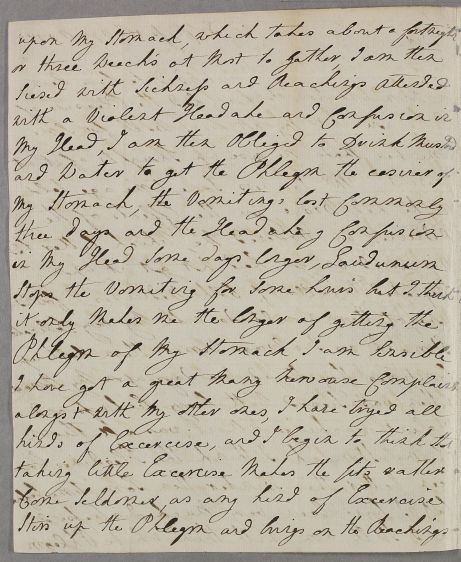 upon My Stomach, which takes about a fortnight
or three Weeks at Most to gather, I am then
Seised with Sickness and Reachings attended
with a Violent Headake and Confusion in
My Head, I am then Obliged to Drink Mustard
and Water to get the Phlegm the easier of
My Stomach, the Vomitings last Commonly
three days and the Headake & Confusion
in My Head Some days longer, Laudunum
Stops the Vomiting for Some hours but I think
it only Makes me the longer of getting the
Phlegm of My Stomach, I am Sensible
I have got a great Many Nervouse Complaints
alongst with My other ones, I have tryed all
kinds of Excercise, and I begin to think that
taking little Excercise Makes the fits rather
Come Seldomer, as any kind of Excercise
Stirs up the Phlegm and brings on the Reachings